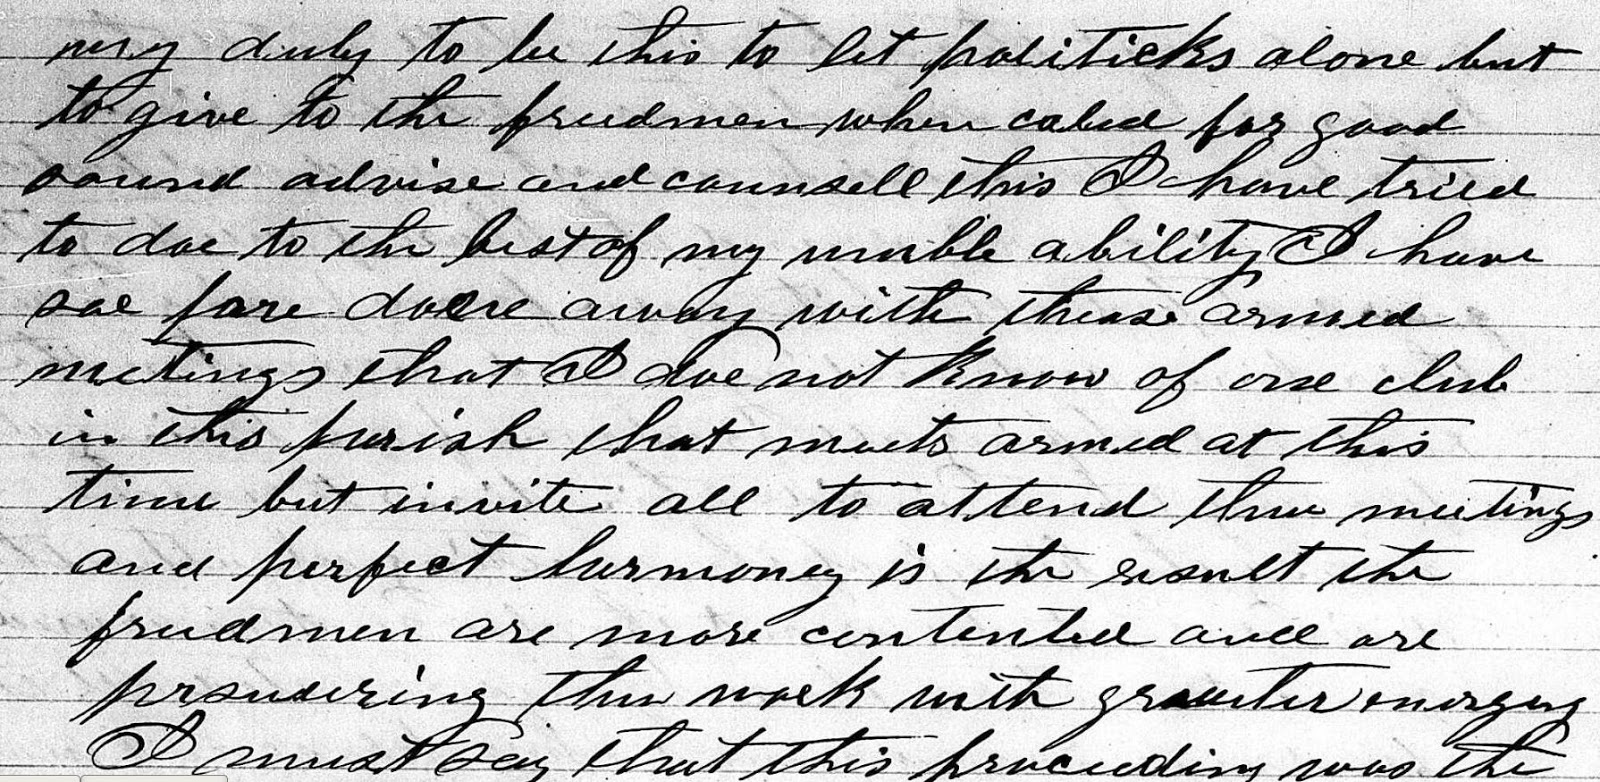 my duty to be this to let politicks alone but
to give to the freedmen when caled for good
sound advise and counsell this I have tried
to doe to the best of my umble ability I have
soe fare done away with these armed
meetings that I doe not know of one club
in this parish that meets armed at this
time but invite all to attend thee meetings
and perfect harmoney is the result the
freedmen are more contented and are
thee work with greater
I must say that this proceeding was the